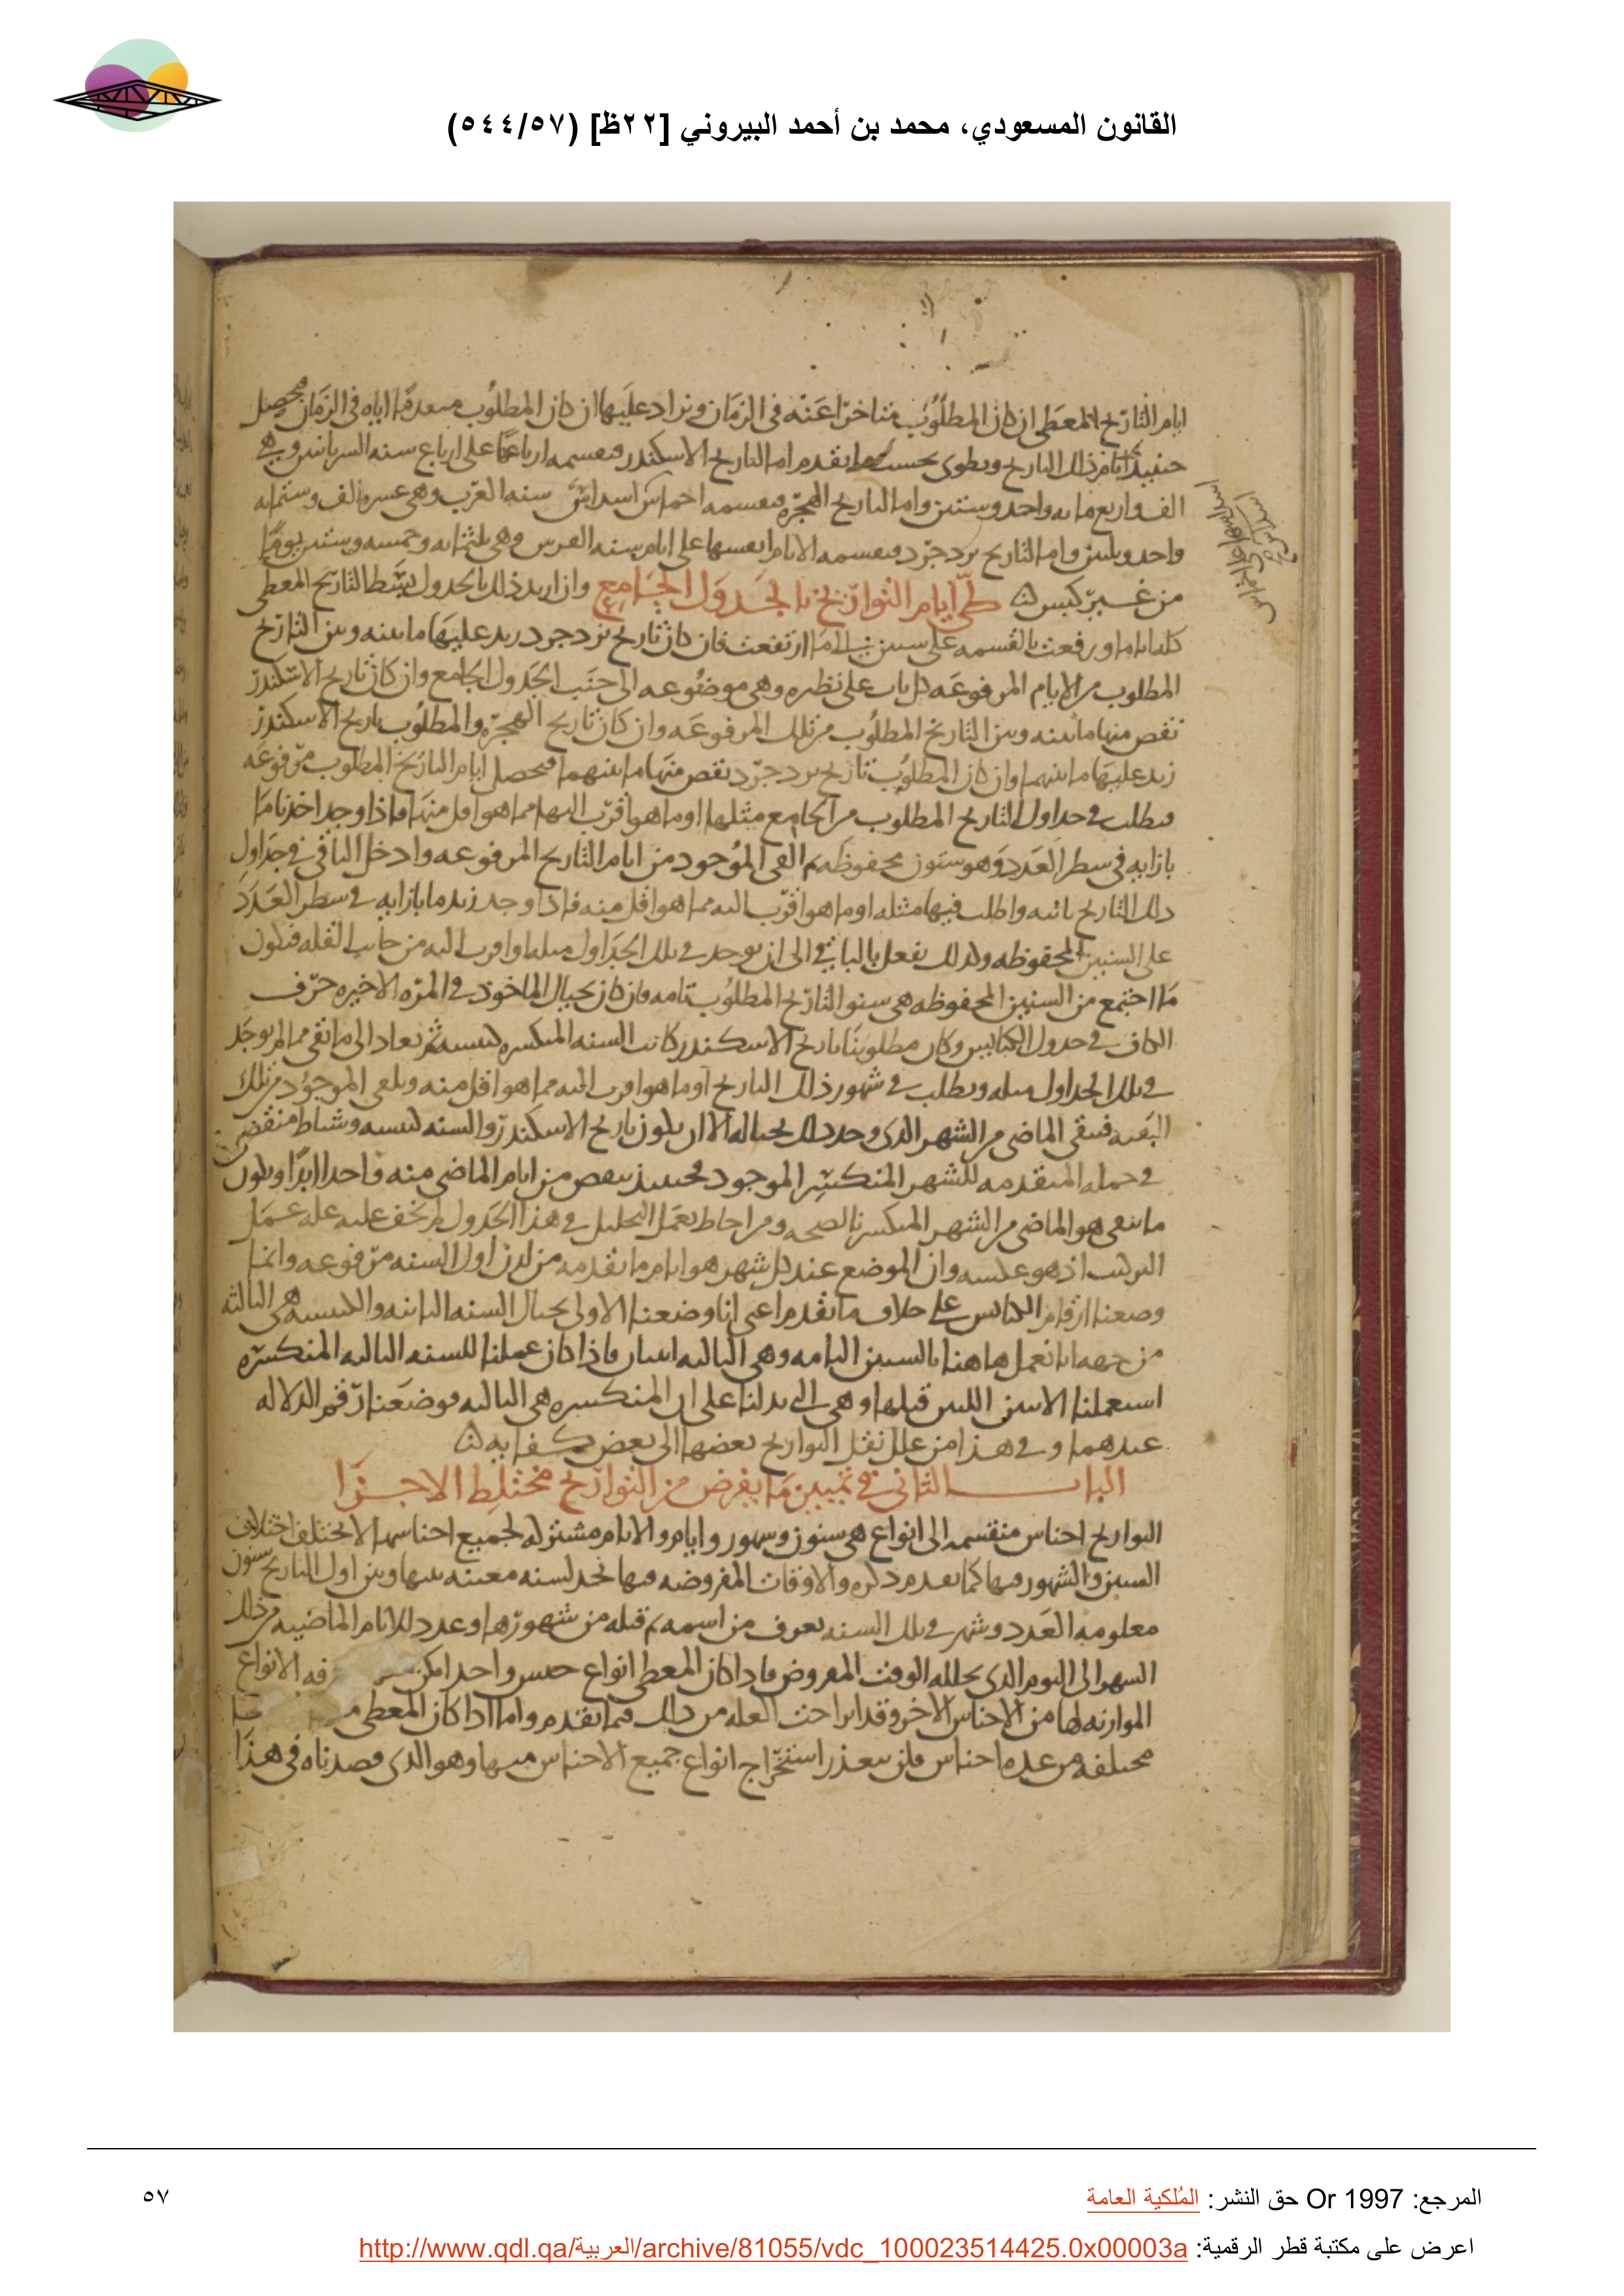 القانون المسعودي، محمد بن أحمد البيروني [٢٢ظ] (٥٤٤/٥٧)
ايام التاريخ المعطى ان كان المطلوب متاخرا عنه فى الزمان ويزاد عليها ان كان المطلوب متقدما اياه فى الزمان فيحصل
حينيذ ايام ذلك التاريخ ويطوى بحسب ما تقدم اما تاريخ الاسكندر فيقسمه ارباعا على ارباع سنه السريانيين وهى
الف واربع مايه واحد وستين واما تاريخ الهجره فيقسمه اخماس اسداس سنه العرب وهى عشره الف وستمايه
واحد وثلثين واما التاريخ يزدجرد فيقسمه الايام انفسها على ايام سنه الفرس وهى ثلثمايه وخمسه وستين يوما
من غير كبس طى ايام التواريخ بالجدول الجامع وان اريد ذلك بالجدول بسط التاريخ المعطى
كله اياما ورفعت بالقسمه على ستين الى ما ارتفعت فان كان تاريخ يزدجرد زيد عليها ما بينه وبين التاريخ
المطلوب من الايام المرفوعه كل باب على نظيره وهى موضوعه الى جنب الجدول الجامع وان كان تاريخ الاسكندر
نقص منها ما بينه وبين التاريخ المطلوب من تلك المرفوعه وان كان تاريخ الهجره والمطلوب تاريخ الاسكندر
زيد عليها ما بينهما وان كان المطلوب تاريخ يزدجرد نقص منها ما بينهما فيحصل ايام التاريخ المطلوب مرفوعه
فيطلب فى جداول التاريخ المطلوب من الجامع مثلها او ما هو اقرب اليها مما هو اقل منها فاذا وجد اخذنا ما
بازايه فى سطر العدد وهو سنون محفوظه ثم القى الموجود من ايام التاريخ المرفوعه وادخل الباقى فى جداول
ذلك التاريخ ثانيه واطلب فيها مثله او ما هو اقرب اليه مما هو اقل منه فاذا وجد زيد ما بازايه فى سطر العدد
على السنين المحفوظه وكذلك يفعل بالباقى الى ان يوجد فى تلك الجداول مثله او اقرب اليه من جانب القله فيكون
ما اجتمع من السنين المحفوظه هى سنو التاريخ المطلوب تامه فان كان بحيال الماخوذ فى المره الاخيره حرف
الكاف فى جدول الكبايس وكان مطلوبنا تاريخ الاسكندر كانت السنه المنكسره كبيسه ثم نعاد الى ما بقى مما لم يوجد
فى تلك الجداول مثله ويطلب فى شهور ذلك التاريخ او ما هو اقرب اليه مما هو اقل منه ويلقى الموجود من تلك
البقيه فيبقى الماضى من الشهر الذى وجد ذلك بحياله الا ان يكون تاريخ الاسكندر والسنه كبيسه وشباط منقضى
فى جمله المتقدمه للشهر المنكسر الموجود فحينيذ ينقص من ايام الماضى منه واحدا ابدا ويكون
ما يبقى هو الماضى من الشهر المنكسر بالصحه ومن احاط بعمل التحليل فى هذا الجدول لم يخف عليه عله عمل
التركيب اذ هو عكسه وان الموضع عند كل شهر هو ايام ما تقدمه من لدن اول السنه مرفوعه وانما
وضعنا ارقام الكبايس على خلاف ما تقدم اعنى انا وضعنا الاولى بحيال السنه الثانيه والكبيسه هى الثالثه
من جهه انا نعمل هاهنا بالسنين التامه وهى التاليه اثنان فاذا كان عملنا للسنه التاليه المنكسره
استعملنا الاثنين اللتين قبلها وهى التى تدلنا على ان المنكسره هى الثالثه فوضعنا رقم الدلاله
عندهما وفى هذا من علل نقل التواريخ بعضها الى بعض كفايه
الباب الثانى فى تمييز ما يفرض من التواريخ مختلط الاجزا
التواريخ اجناس منقسمه الى انواع هى سنون وشهور وايام والايام مشتركه لجميع اجناسها لا يختلف اختلاف
السنين والشهور فيها كما تقدم ذكره والاوقات المفروضه فيها تحد لسنه معينه بينها وبين اول التاريخ سنون
معلومه العدد وشهر فى تلك السنه يعرف من اسمه ثم قبله من شهورها وعدد للايام الماضيه من ذلك
الشهر الى اليوم الذى يحلله الوقت المفروض فاذا كان المعطى انواع جنس واحد امكن فه الانواع
الموازنه لها من الاجناس الاخر وقد انزاحت العله من ذلك فيما تقدم واما اذا كان المعطى
مختلفه من عده اجناس فلن يتعذر استخراج انواع جميع الاجناس منها وهو الذى قصدناه فى هذا
المرجع: Or 1997 حق النشر: المُلكية العامة
٥٧
اعرض على مكتبة قطر الرقمية: http://www.qdl.qa/العربية/archive/81055/vdc_100023514425.0x00003a